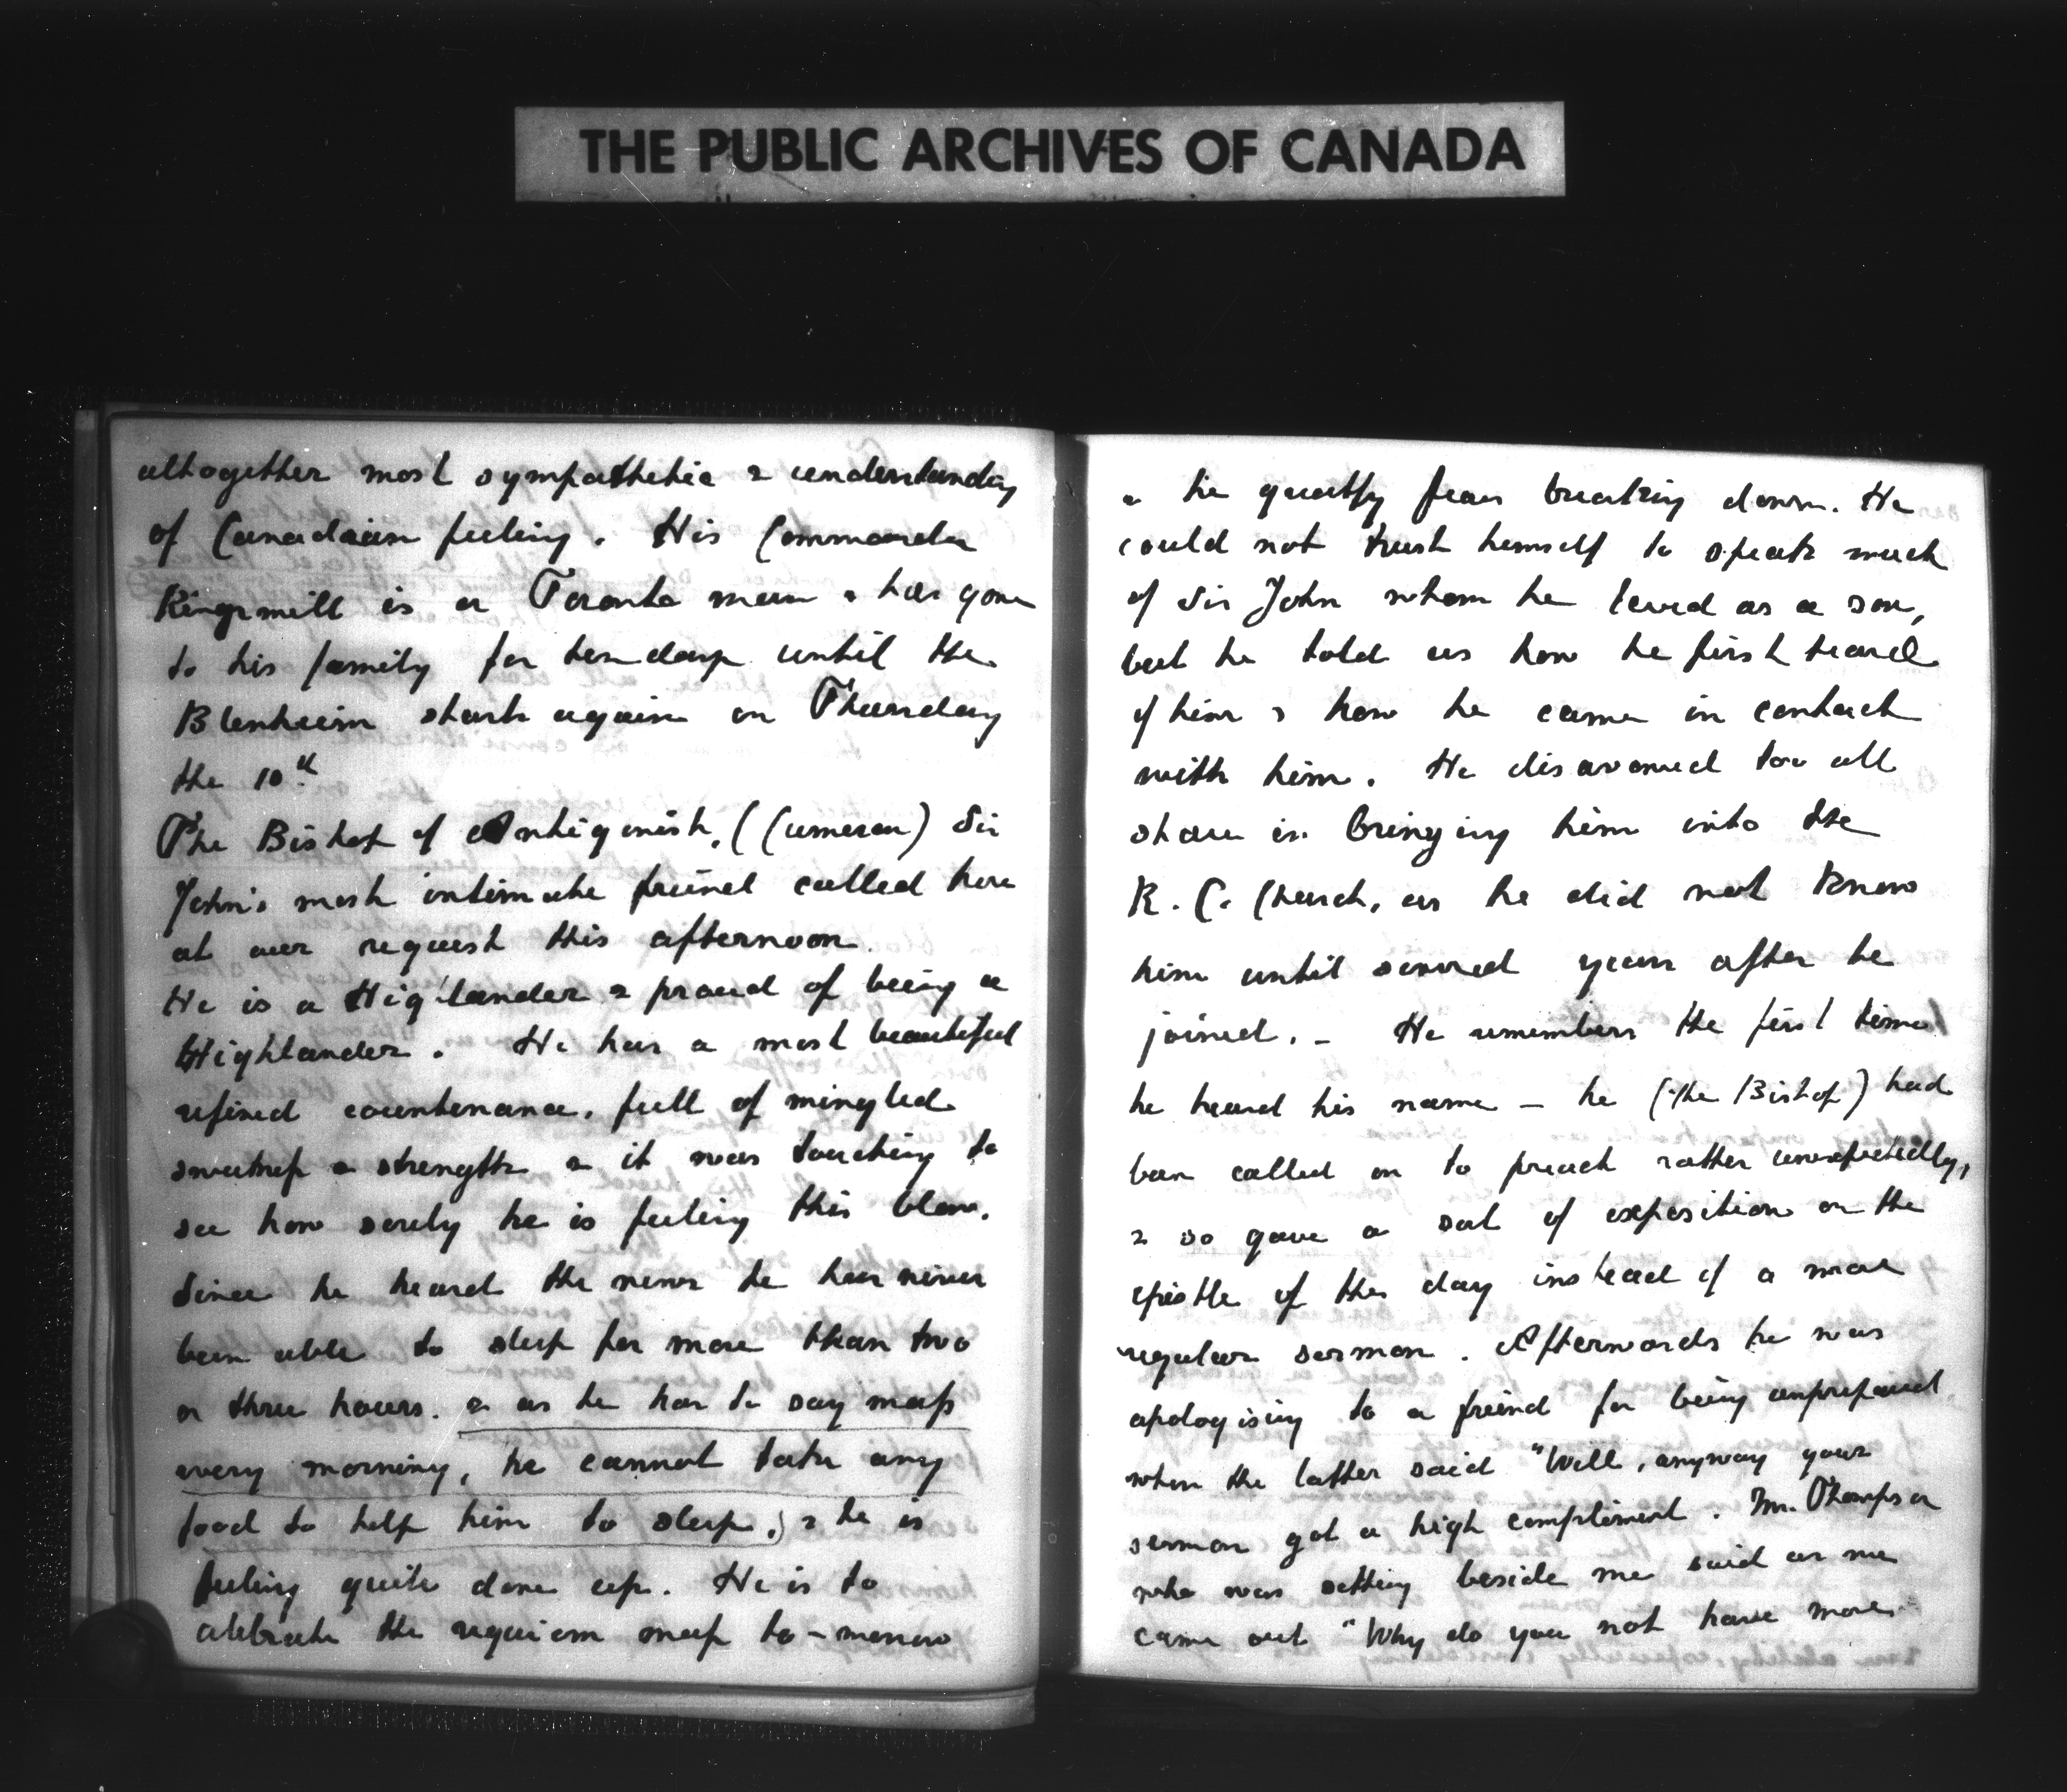 THE PUBLIC ARCHIVES OF CANADA
altogether most sympathetic & understanding
of Canadian feeling. His Commander
Kingsmill is a Toronto man & has gone
to his family for ten days until the
Blenheim starts again on Thursday
the 10th
The Bishop of Antigonish, (Cameron) Sir
John's most intimate friend called here
at our request this afternoon.
He is a Highlander & proud of being a
Highlander. He has a most beautiful
refined countenance, full of mingled
sweetness & strength & it was touching to
see how sorely he is feeling this blow.
Since he heard the news he has never
been able to sleep for more than two
or three hours. & as he has to say mass
every morning, he cannot take any
food to help him to sleep, & he is
feeling quite done up. He is to
celebrate the requiem mass to-morrow
& he greatly fears breaking down. He
could not trust himself to speak much
of Sir John whom he loved as a son,
but he told us how he first heard
of him & how he came in contact
with him. He disavowed too all
share in bringing him into the
R. C. Church, as he did not know
him until several years after he
joined. – He remembers the first time
he heard his name – he (the Bishop) had
been called on to preach rather unexpectedly,
& so gave a sort of exposition on the
epistle of the day instead of a more
regular sermon. Afterwards he was
apologising to a friend for being unprepared
when the latter said "Well, anyway your
sermon got a high compliment. Mr. Thompson
who was sitting beside me said as we
came out "Why do you not have more